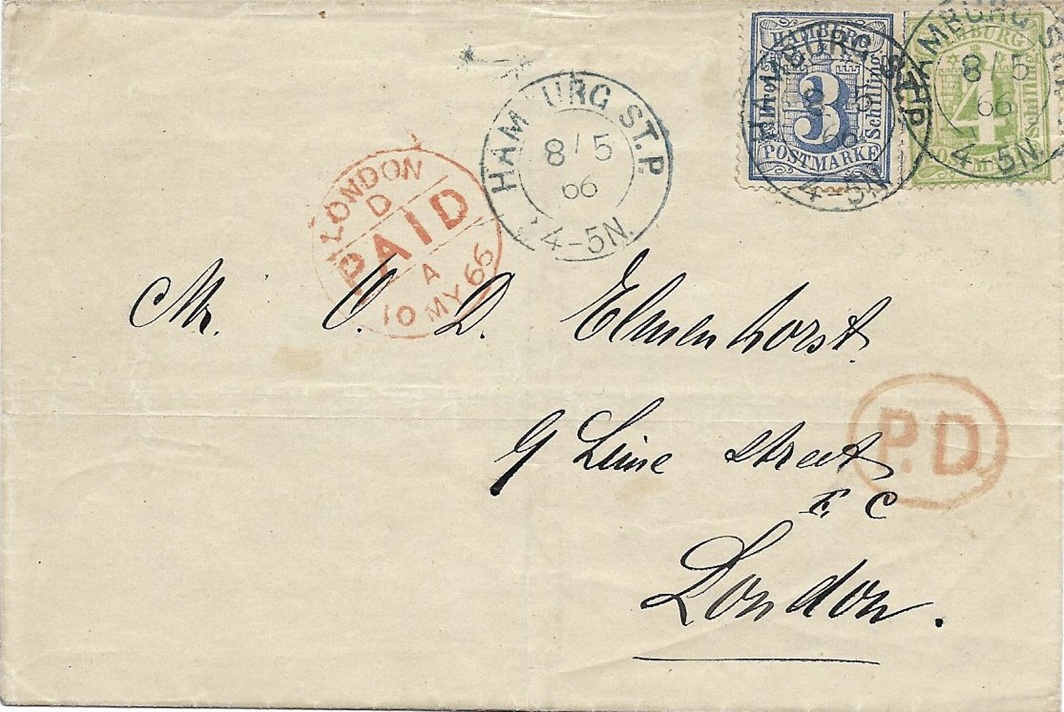 HAMBURG
3
Schilling
POSTMARKE
HAMBURG ST. P.
8 / 5
66
4-5N.
HAMBURG
4
Schilling
HAMBURG ST. P.
8 / 5
66
4-5N
HAMBURG ST. P.
8 / 5
66
4-5N.
LONDON
D
PAID
A
10 MY 66
Mr. O. D. Elmenhorst
P.D
9 Lime Street
E C
London.